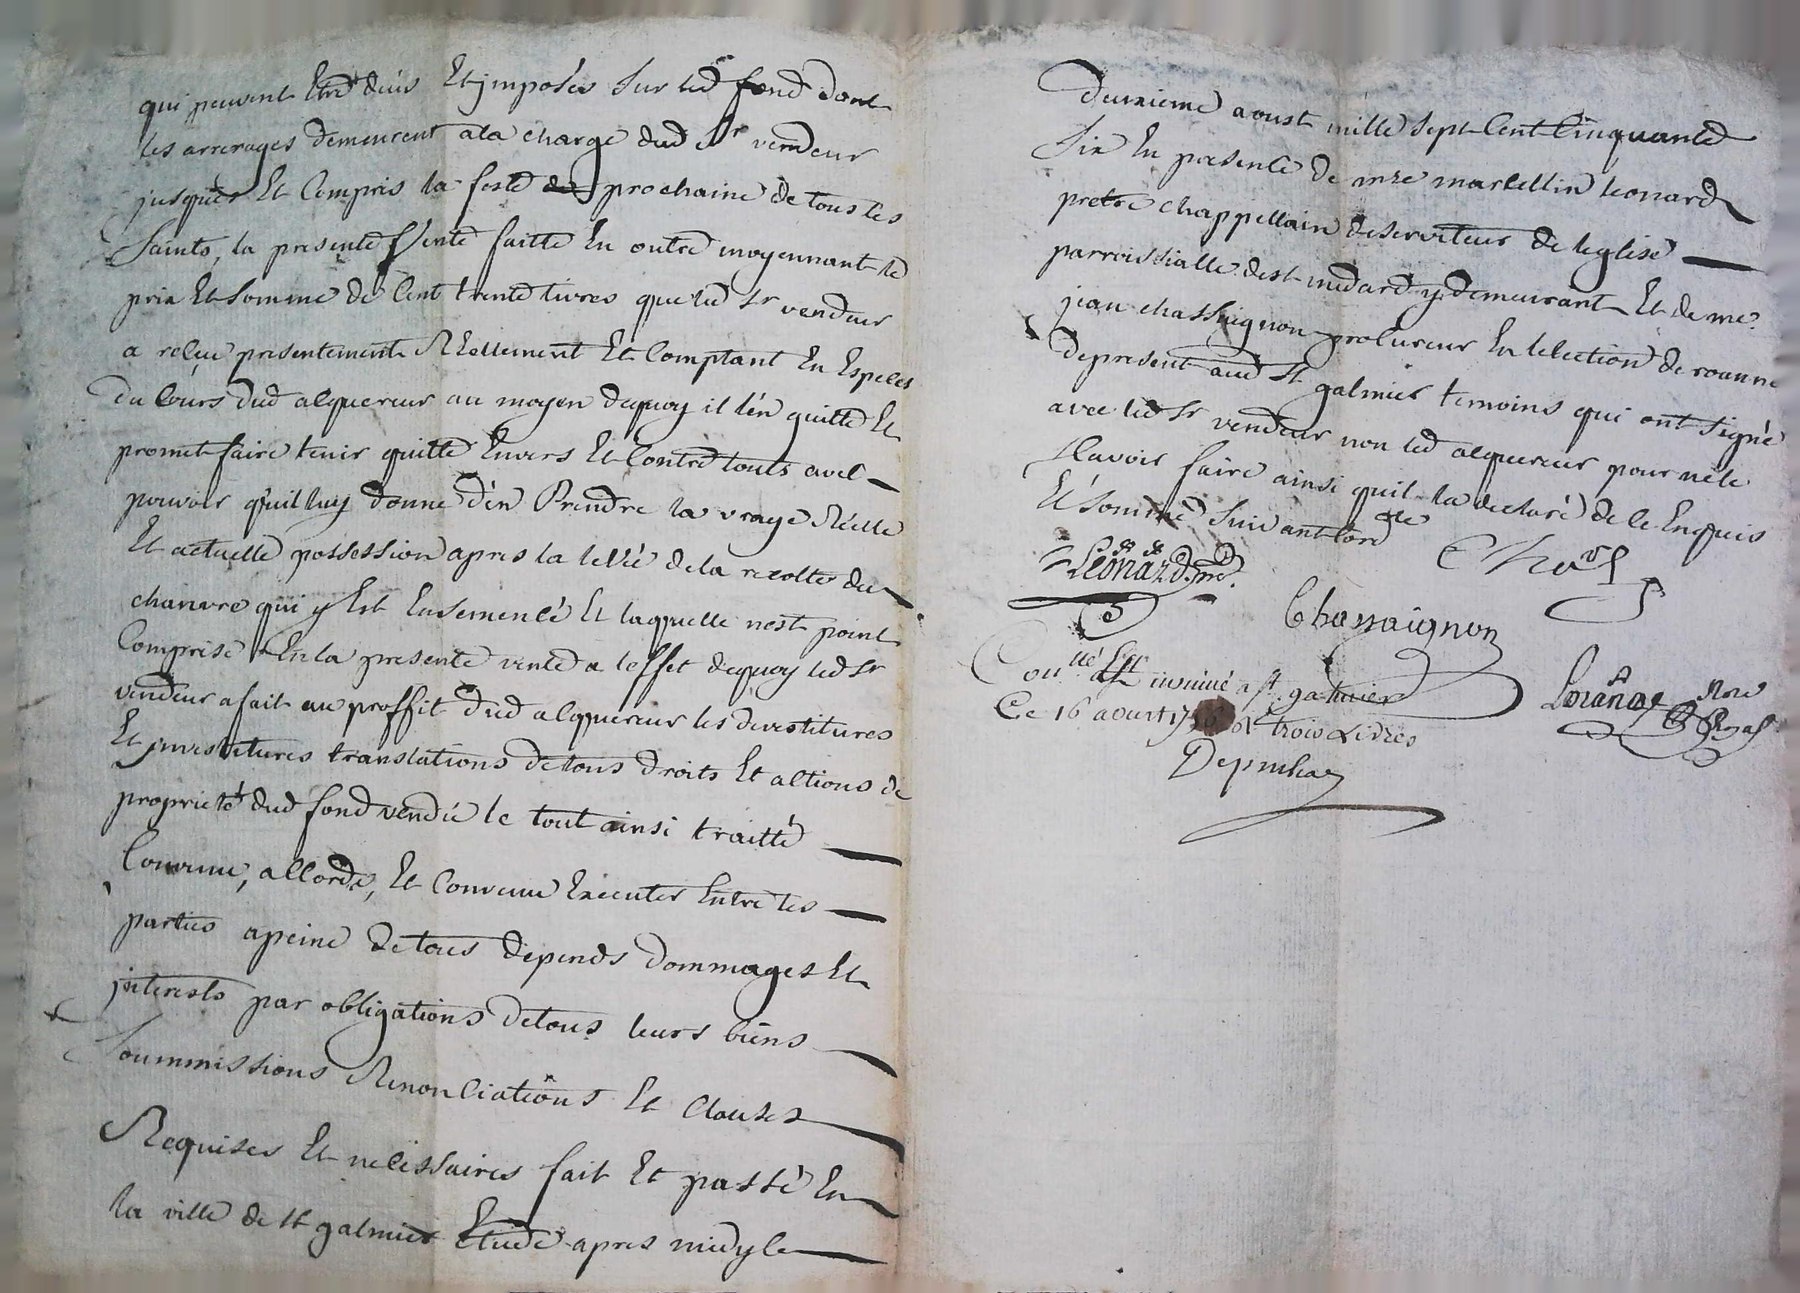 qui peuvent Etre deüs Et jmposés Sur led fond dont
les arrerages demeurent ala charge dud Sr vendeur
jusques Et Compris la feste prochaine de tous les
Saints, la presente Vente faitte En outre moyennant le
prix Et Somme de Cent trente livres que led Sr vendeur
a reçue presentement Réellement Et Comptant En Especes
du Cours dud acquereur au moyen dequoy il l'en quitte Et
promet faire tenir quitte Envers Et Contre touts avec
pouvoir qu'il luy donne d'en Prendre la vraye Réelle
Et actuelle possession apres la levée de la recolte du
chanvre qui y Est Ensemencé Et laquelle nest point
Comprise En la presente vente a leffet dequoy led Sr
vendeur a fait au proffit dud acquereur les devestitures
Et jnvestitures translations de tous droits Et actions de
proprieté dud fond vendu le tout ainsi traitté
Convenu, accordé, Et Convenu Executer Entre les
parties apeine de tous depends dommages Et
jnterests par obligations de tous leurs biens
Soummissions Renonciations Et Clauses
Requises Et necessaires fait Et passé En
la ville de St galmier Etude apres midy le
deuxieme aoust mille Sept Cent Cinquante
Six En presence de mre marcellin leonard
pretre chappellain deserviteur de leglise
parroissialle de st medard y demeurant Et de me
jean chassaignon procureur En lelection de roanne
depresent aud St galmier temoins qui ont Signé
avec led Sr vendeur non led acquereur pour ne le
Scavoir faire ainsi quil la declaré de ce Enquis
Et Sommé Suivant lordce
Leonard pre.
Chassaignon
Conllé Et insinué a St galmier
Ce 16 aoust 1756 trois Livres